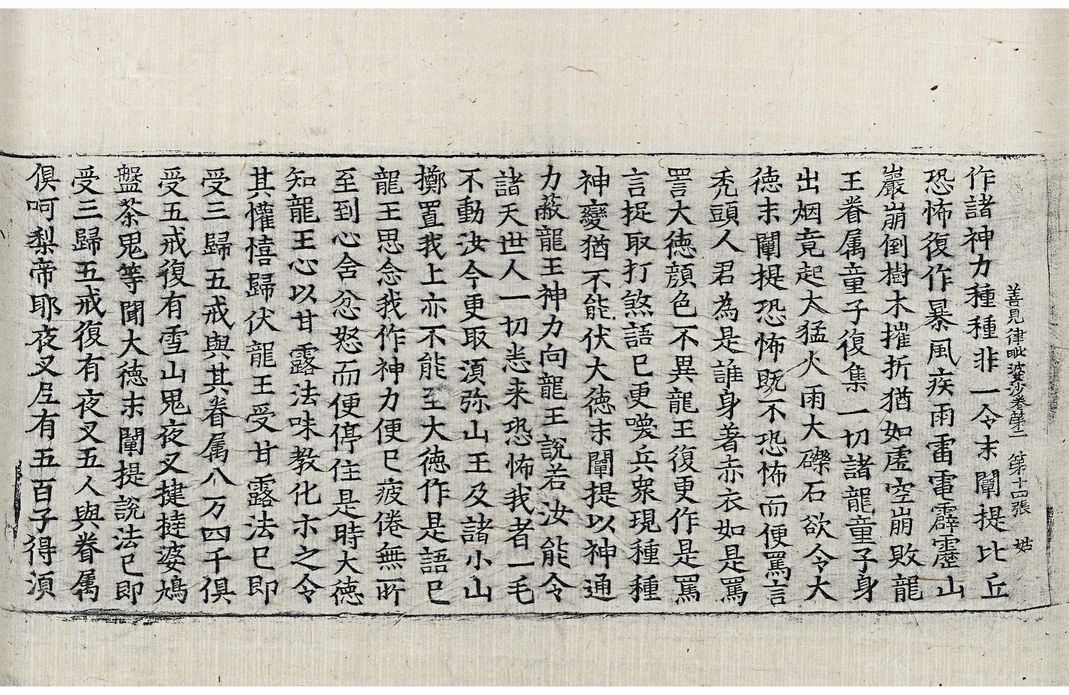 善見律毗婆沙卷第二 第十四張 姑
作諸神力種種非一令末闡提比丘
恐怖復作暴風疾雨雷電霹靂山
巖崩倒樹木摧折猶如虛空崩敗龍
王眷属童子復集一切諸龍童子身
出烟竟起大猛火雨大礫石欲令大
德末闡提恐怖既不恐怖而便罵言
禿頭人君為是誰身著赤衣如是罵
詈大徳顔色不異龍王復更作是罵
言捉取打煞語已更喚兵衆現種種
神變猶不能伏大徳末闡提以神通
力蔽龍王神力向龍王說若汝能令
諸天世人一切悉来恐怖我者一毛
不動汝今更取湏弥山王及諸小山
擲置我上亦不能至大徳作是語已
龍王思念我作神力便已疲倦無所
至到心含忿怒而便停住是時大徳
知龍王心以甘露法味教化示之令
其懽憘歸伏龍王受甘露法已即
受三歸五戒與其眷属八万四千俱
受五戒復有雪山鬼夜叉揵撻婆鳩
盤荼鬼等聞大徳末闡提說法已即
受三歸五戒復有夜叉五人與眷属
俱呵梨帝耶夜叉𡰱有五百子得湏